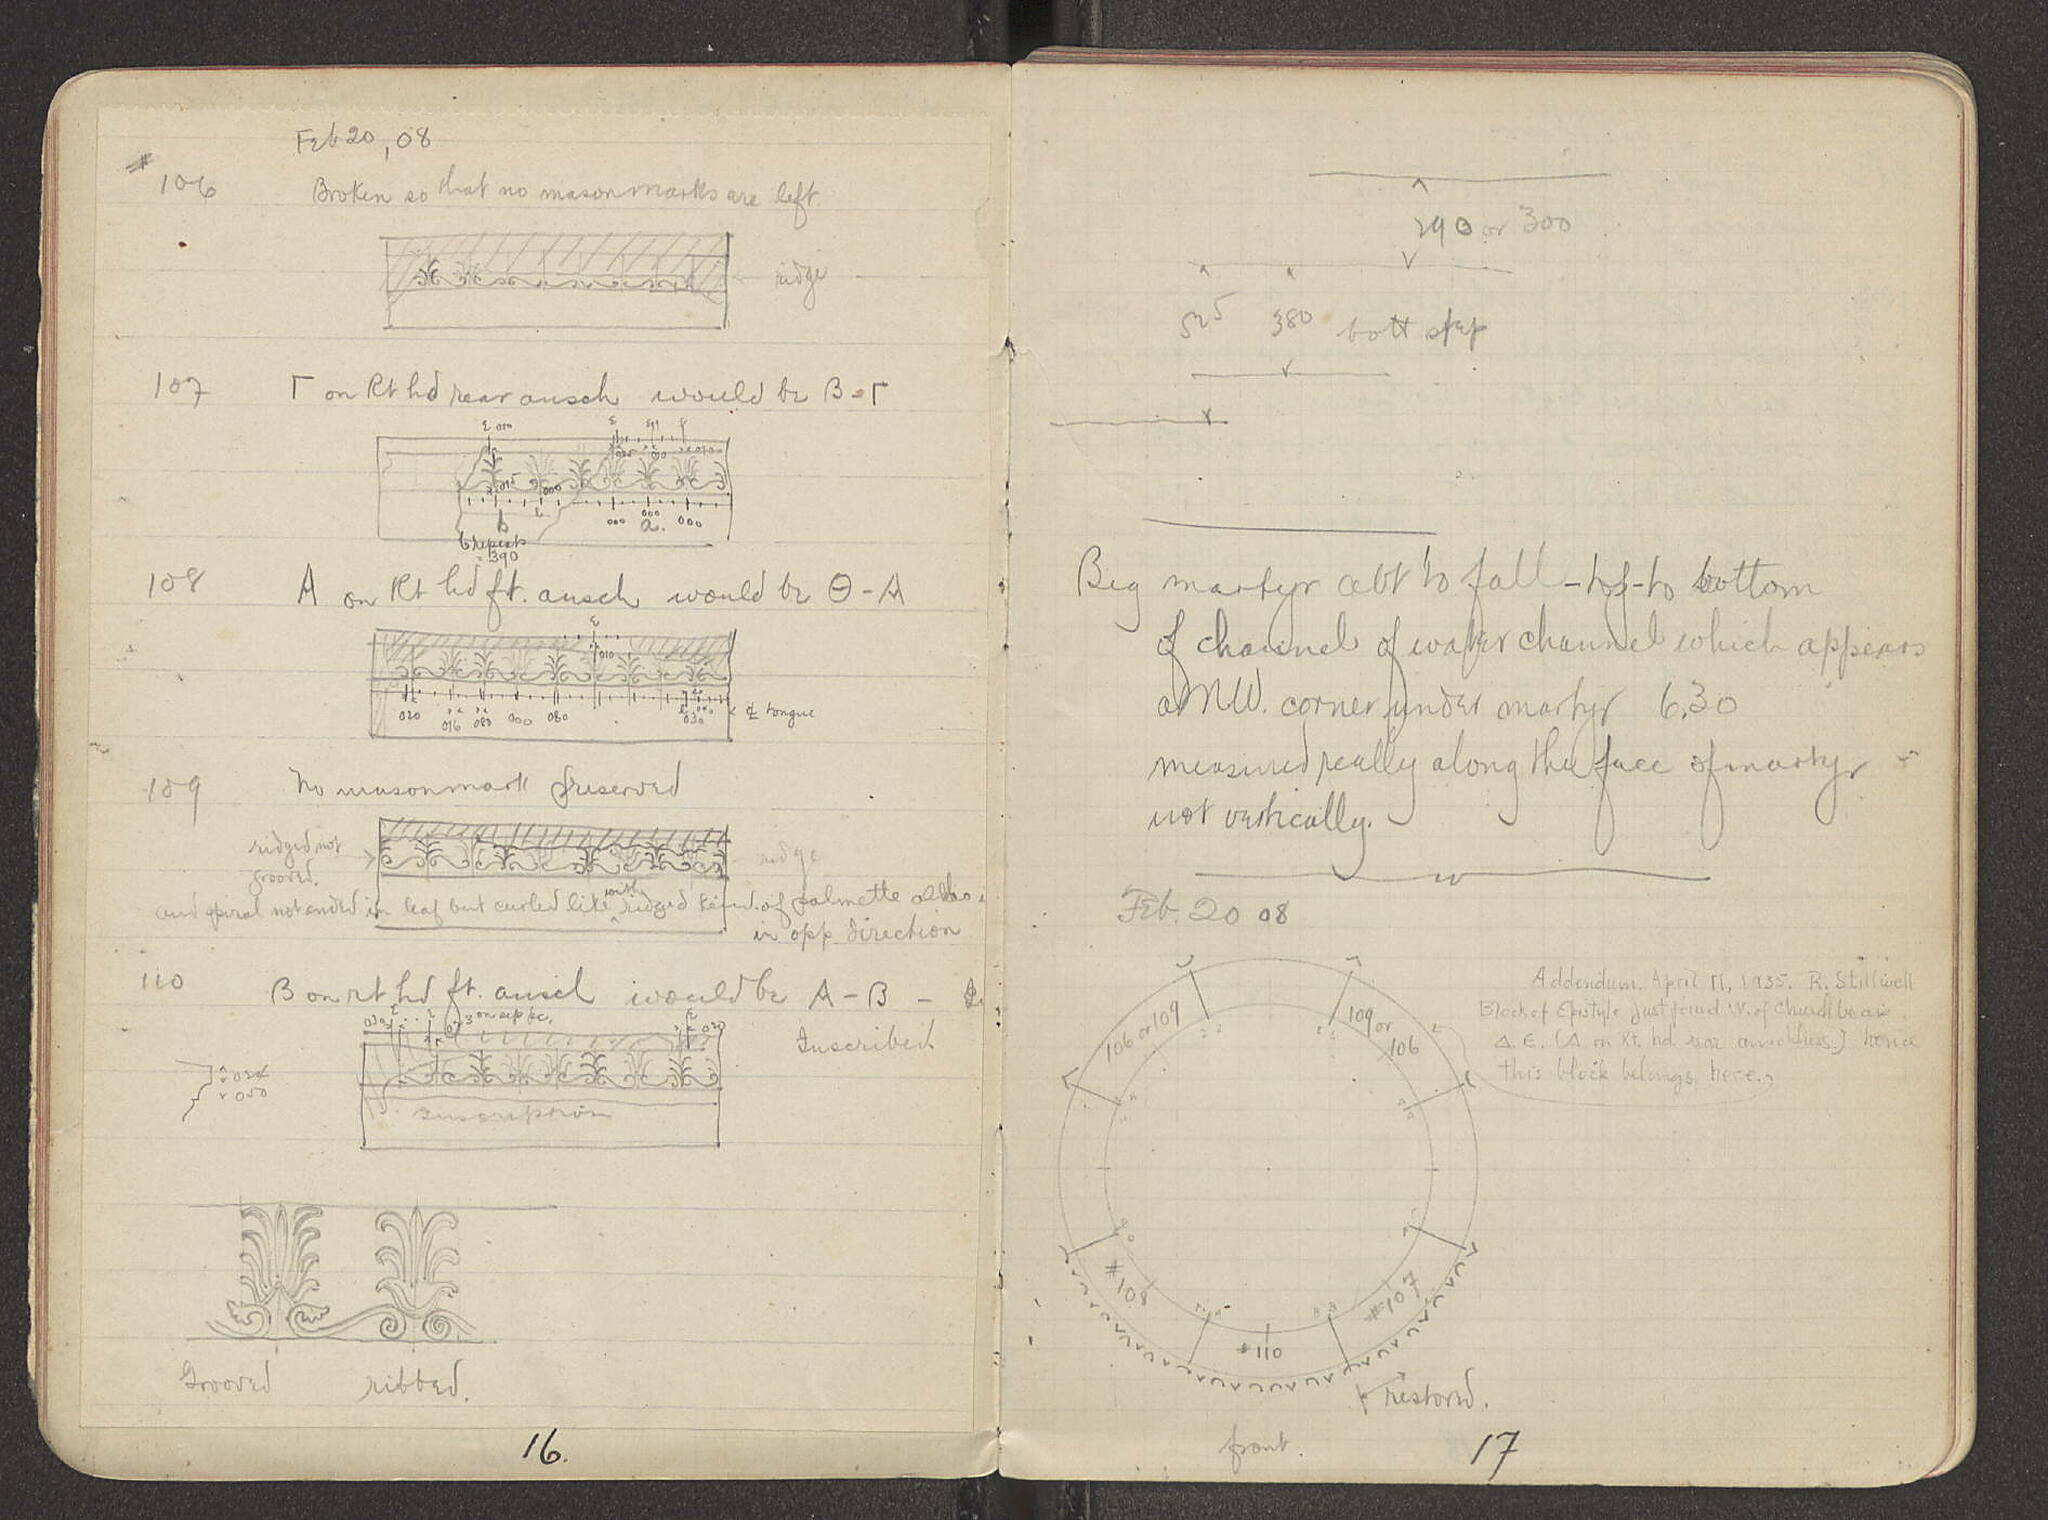 Feb 20, 08
#
106 Broken so that no mason marks are left.
ridge
107 Γ on Rt hd rear ansch would be B-Γ
010
b
a.
000 000 000
6 repeats
= 390
108 A on Rt hd ft. ansch would be Θ-A
010
020 016 080 000 080 030
tongue
109 No masonmark preserved
ridged, not
grooved.
ridge
and spiral not ended in leaf but curled like with ridged kind of palmette also
in opp. direction
110 B on rt hd ft. ansch would be A-B -
Inscribed.
030
050
Inscription
Grooved ribbed.
16.
290 or 300
525 380 bott step
Big martyr abt to fall - top - to bottom
of channel of water channel which appears
at N.W. corner under martyr 6.30
measured really along the face of martyr
not vertically.
Feb. 20 08
Addendum. April 11, 1935. R. Stillwell
Block of Epistyle just found W. of Church bears
Δ. E. (Δ on Rt. hd rear anathyrs.) hence
this block belongs here.
106 or 109
109 or
106
#108
#107
#110
restored.
front.
17